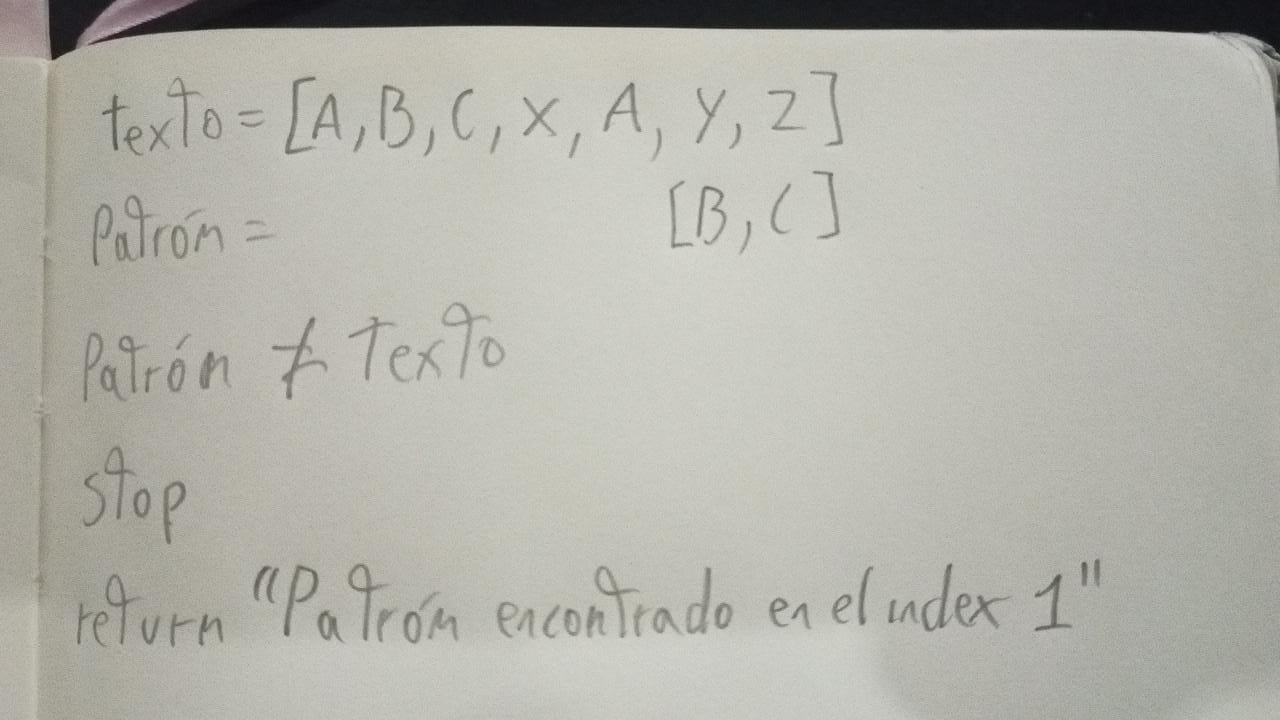 texto = [A, B, C, X, A, Y, Z]
Patrón = [B, C]
Patrón ≠ Texto
stop
return "Patrón encontrado en el index 1"